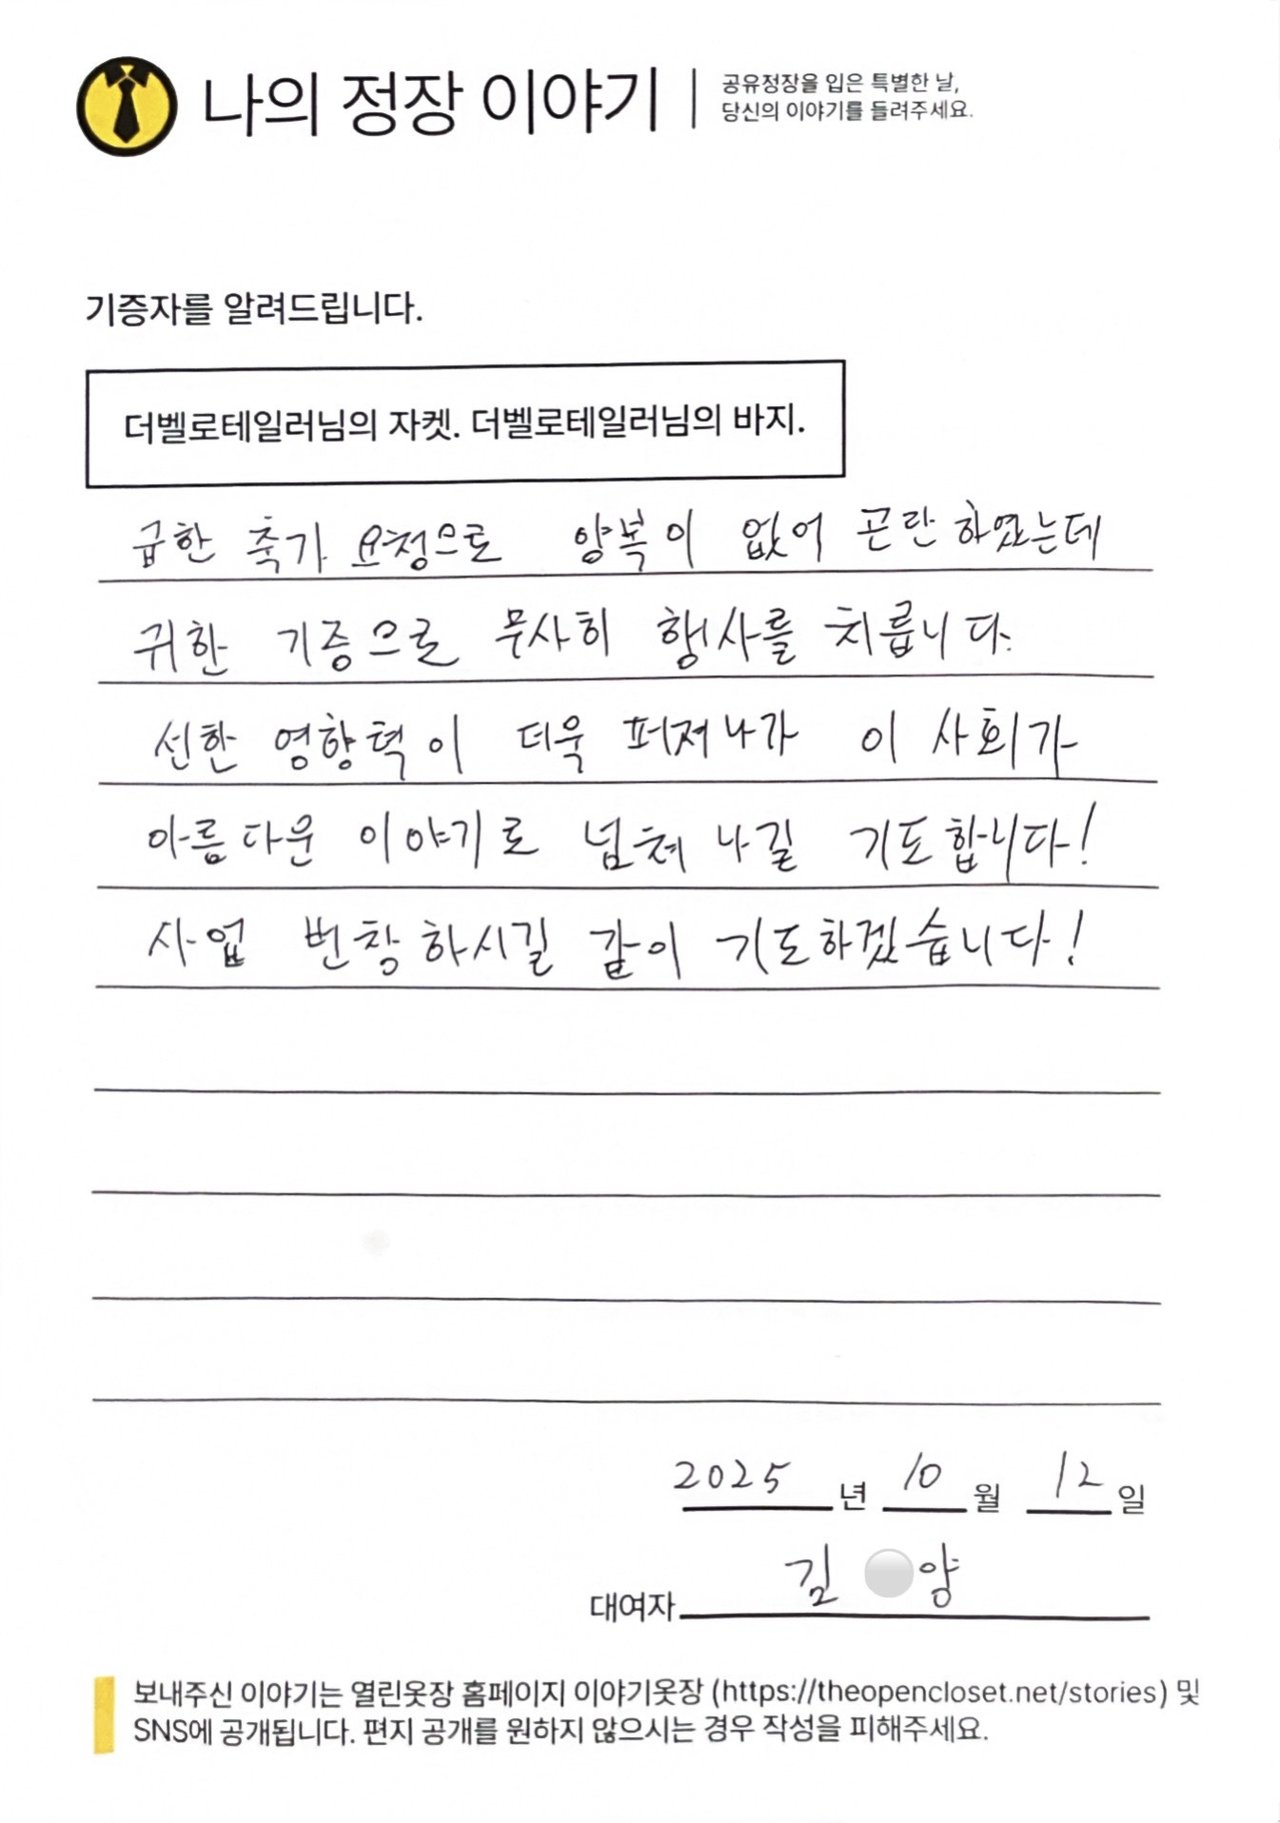 나의 정장 이야기
공유정장을 입은 특별한 날,
당신의 이야기를 들려주세요.
기증자를 알려드립니다.
더벨로테일러님의 자켓. 더벨로테일러님의 바지.
급한 축가 요청으로 양복이 없어 곤란하였는데
귀한 기증으로 무사히 행사를 치룹니다.
선한 영향력이 더욱 퍼져나가 이 사회가
아름다운 이야기로 넘쳐나길 기도합니다!
사업 번창하시길 같이 기도하겠습니다!
2025년 10월 12일
대여자 김 양
보내주신 이야기는 열린옷장 홈페이지 이야기옷장 (https://theopencloset.net/stories) 및
SNS에 공개됩니다. 편지 공개를 원하지 않으시는 경우 작성을 피해주세요.